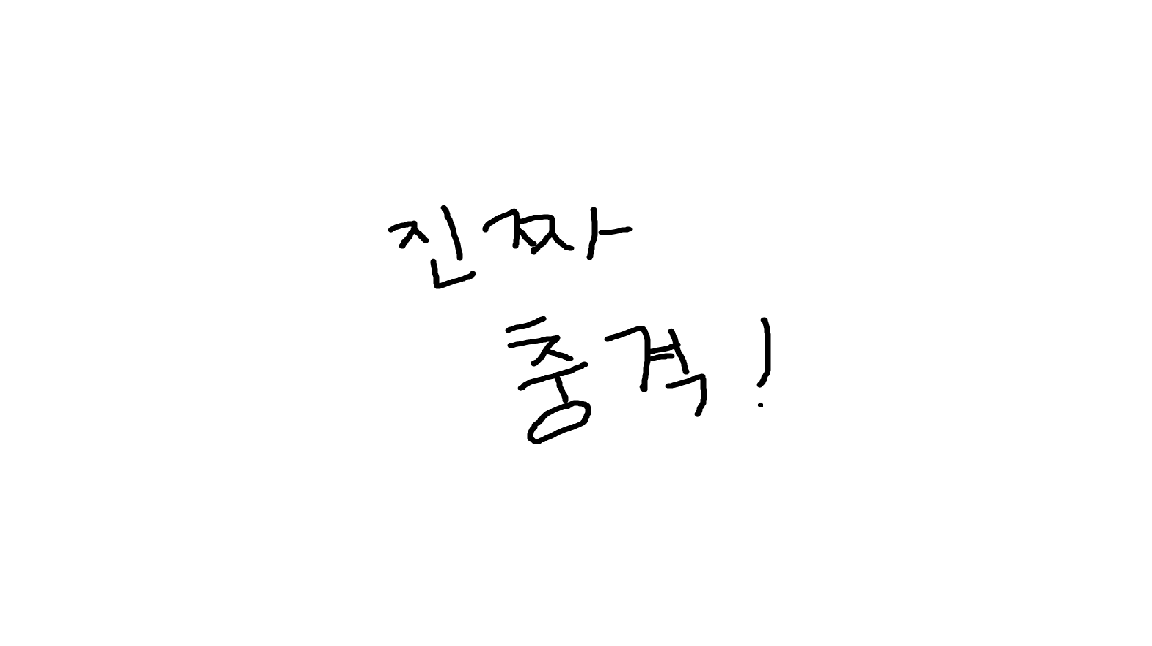 진짜
충격!